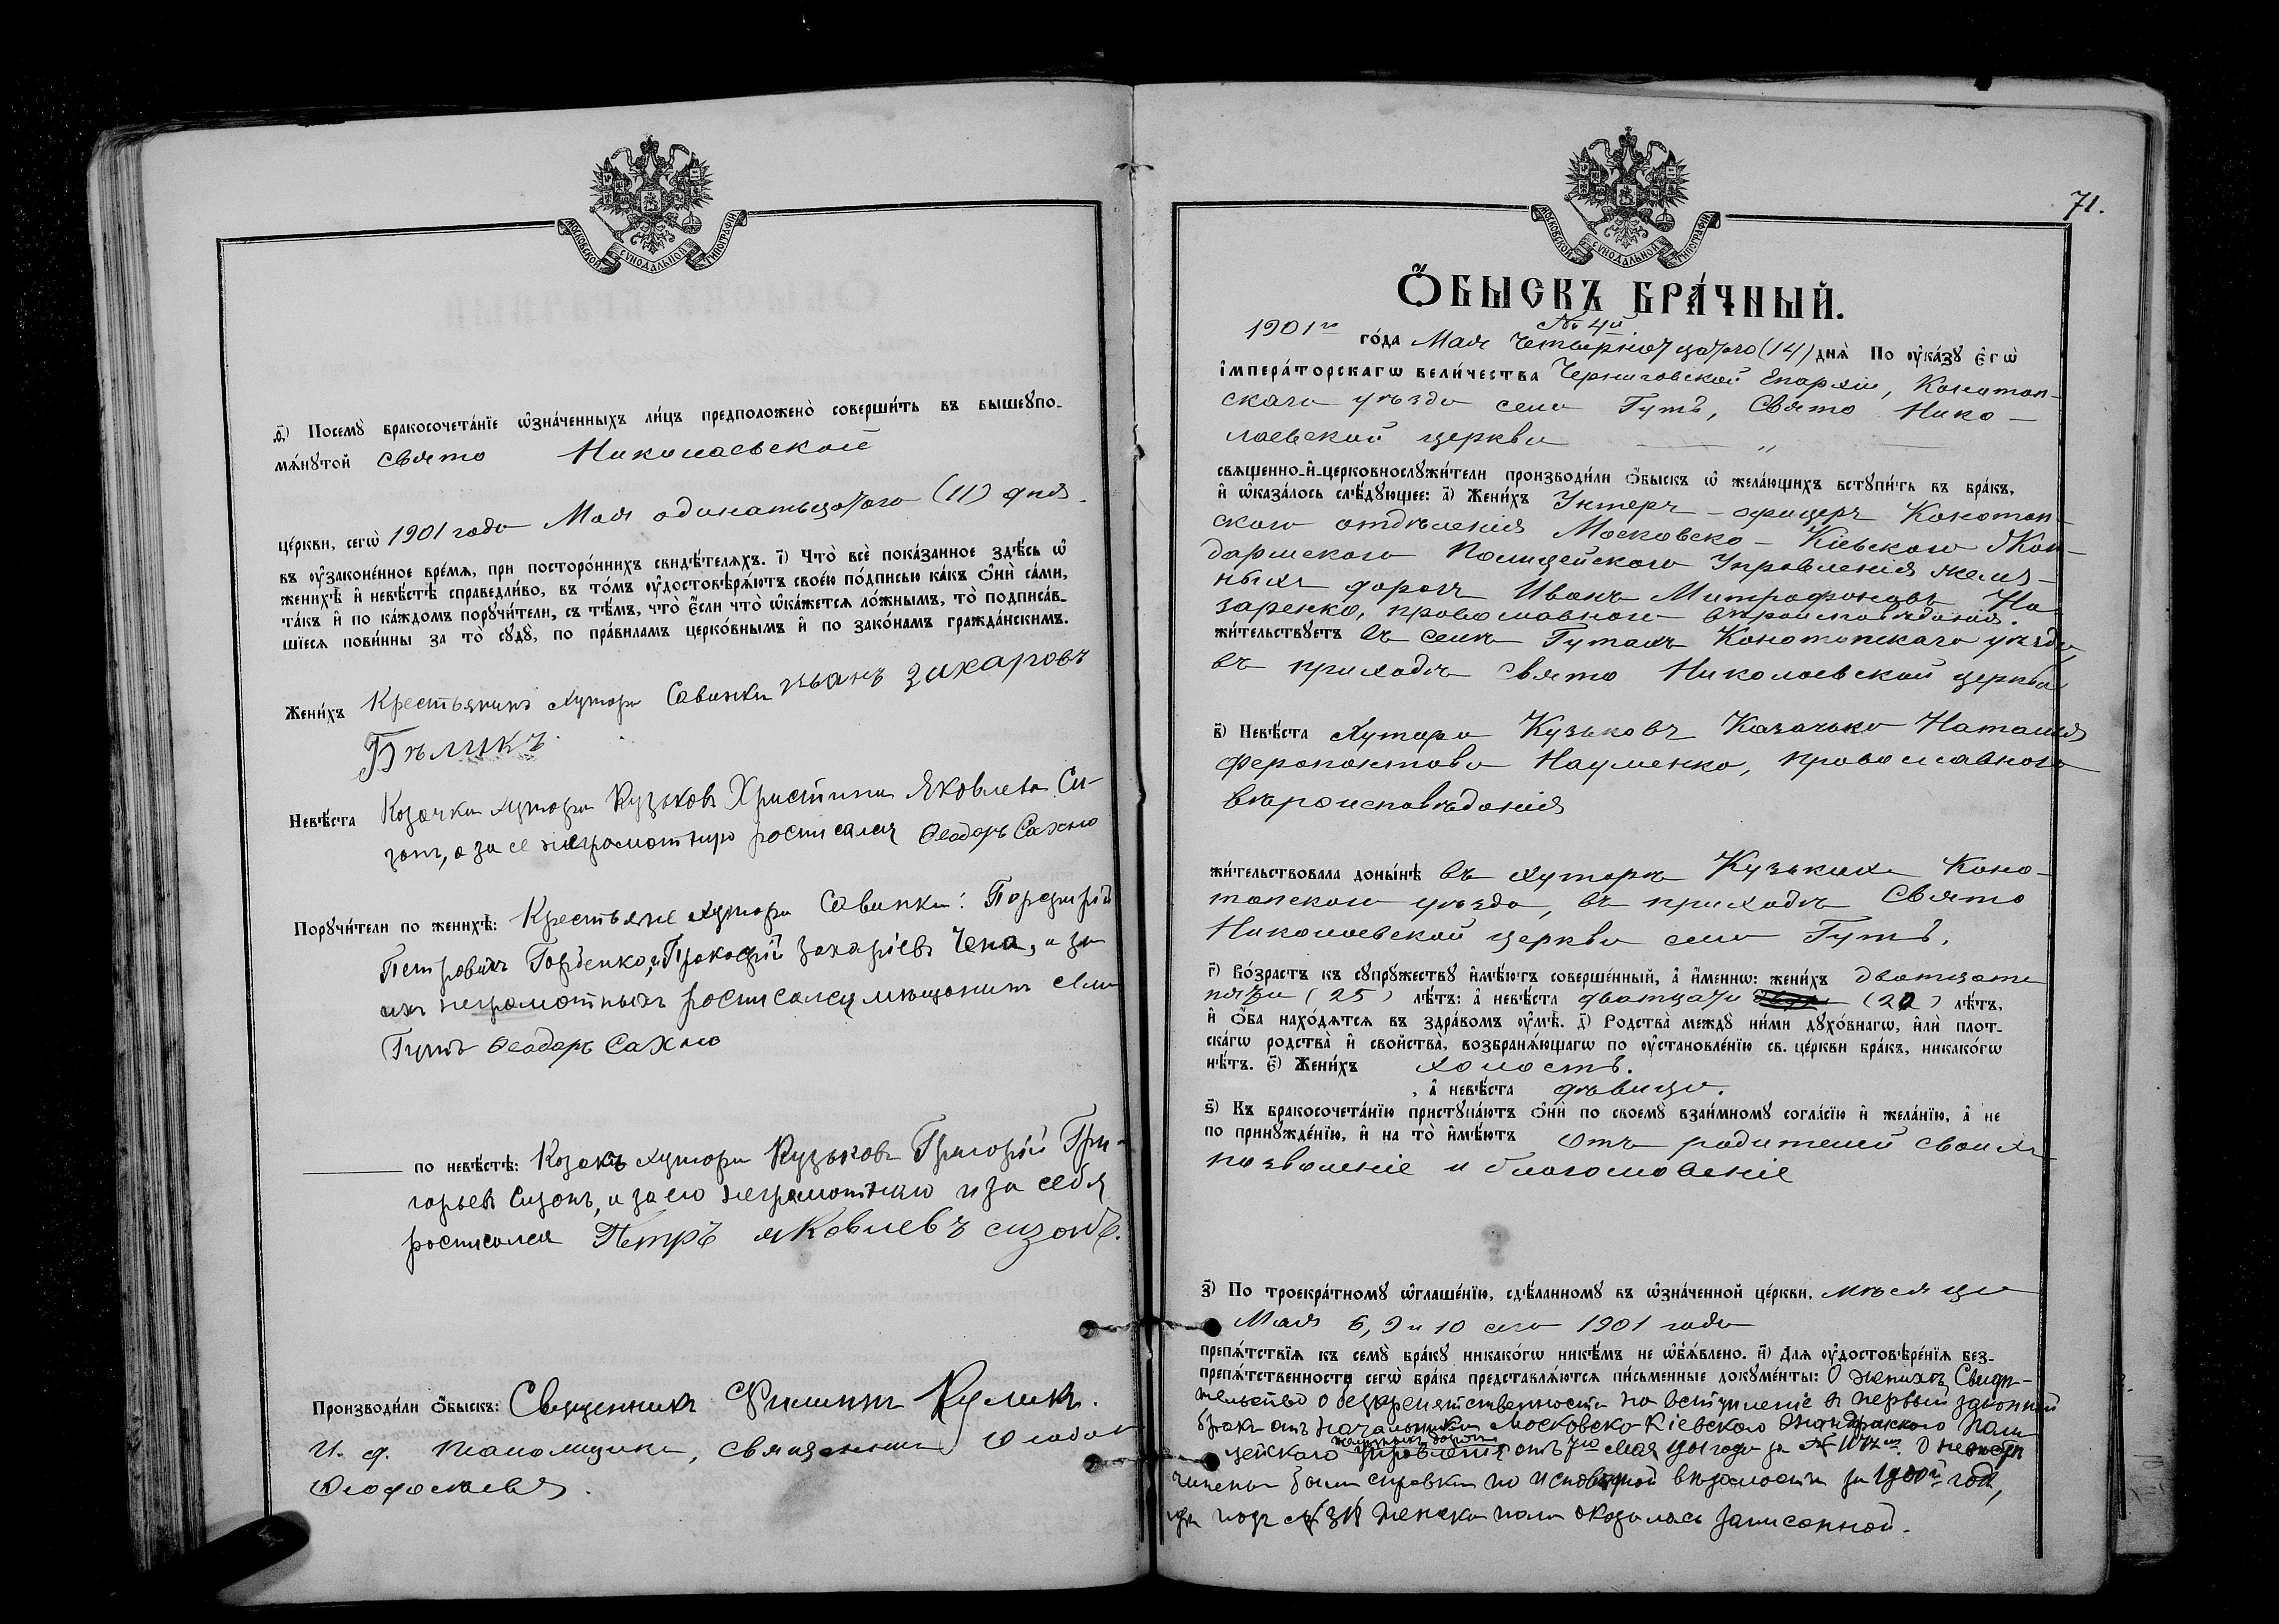 МОСКОВСКОЙ СѴНОДАЛЬНОЙ ТИПОГРАФІИ
ѳ҃) Посемꙋ̀ бракосочета́нїе ѡ҆зна́ченныхъ ли́цъ предположено̀ соверши́ть въ вышеꙋпо-
мѧ́нꙋтой Свято Николаевской
це́ркви, сегѡ̀ 1901 года Мая одинатьцатаго (11) дня.
въ ᲂу҆зако́ненное вре́мѧ, при посторо́ннихъ свидѣ́телѧхъ. і҃) Что̀ всѐ пока́занное здѣ́сь ѡ҆
женихѣ̀ и҆ невѣ́стѣ справедли́во, въ то́мъ ᲂу҆достовѣрѧ́ютъ свое́ю по́дписью ка́къ ѻ҆нѝ са́ми,
та́къ и҆ по ка́ждомъ порꙋчи́тели, съ тѣ́мъ, что̀ є҆́сли что̀ ѡ҆ка́жетсѧ ло́жнымъ, то̀ подписа́в-
шїесѧ пови́нны за то̀ сꙋдꙋ̀, по пра́виламъ церко́внымъ и҆ по зако́намъ гражда́нскимъ.
Жени́хъ Крестьянинъ хутора Савинки иванъ Захаровъ
Бѣликъ
Невѣ́ста Козачка хутора Кузьковъ Христина Яковлева Си-
зонъ, а за ее неграмотную росписался Ѳеодоръ Сахно
Порꙋчи́тели по женихѣ̀: Крестьяне хутора Савинки: Порфирій
Петровичъ Горбенко, Прокофій Захаріевъ Чепа, а за
ихъ неграмотныхъ росписался мѣщанинъ села
Гутъ Ѳеодоръ Сахно
по невѣ́стѣ: Козакъ хутора Кузьковъ Григорій Гри-
горьевъ Сизонъ, а за его неграмотнаго и за себя
росписался Петръ яковлевъ сизонъ.
Производи́ли ѻ҆́быскъ: Священникъ Филиппъ Кулик.
И. д. псаломщика, священникъ
71.
МОСКОВСКОЙ СѴНОДАЛЬНОЙ ТИПОГРАФІИ
Ѻ҆́БЫСКЪ БРА́ЧНЫЙ.
№ 4й
1901го го́да Мая четырнатцатаго (14) днѧ̀ По ᲂу҆ка́зꙋ є҆гѡ̀
і҆мпера́торскагѡ вели́чества Черниговской Епархіи, Конотоп-
скаго уѣзда села Гутъ, Свято Нико-
лаевской церкви "
свѧщенно-и҆-церковнослꙋжи́тели производи́ли ѻ҆́быскъ ѡ҆ жела́ющихъ встꙋпи́ть въ бра́къ,
и҆ ѡ҆каза́лось слѣ́дꙋющее: а҃) Жени́хъ Унтеръ-офицеръ Конотоп-
скаго отдѣленія Московско-Кіевского Жан-
дармскаго Полицейского Управленія желѣз-
ныхъ дорогъ Иванъ Митрофановъ На-
заренко, православного вѣроисповѣданія.
жи́тельствꙋетъ въ селѣ Гутахъ Конотопскаго уѣзда,
въ приходѣ Свято Николаевской церкви
в҃) Невѣ́ста хутора Кузьковъ Казачька Наталія
Ферапонтова Науменко, православного
вѣроисповѣданія
жи́тельствовала доны́нѣ въ хуторѣ Кузькахъ Коно-
топского уѣзда, въ приходѣ Свято
Николаевской церкви села Гутъ.
г҃) Во́зрастъ къ сꙋпрꙋ́жествꙋ и҆мѣ́ютъ соверше́нный, а҆ и҆́меннѡ: жени́хъ дватцати
пяти (25) лѣ́тъ: а҆ невѣ́ста дватцати (20) лѣ́тъ,
и҆ ѻ҆́ба нахо́дѧтсѧ въ здра́вомъ ᲂу҆мѣ̀. д҃) Родства̀ междꙋ̀ ни́ми дꙋхо́внагѡ, и҆лѝ плот-
ска́гѡ родства̀ и҆ сво́йства, возбранѧ́ющагѡ по ᲂу҆становле́нїю св. це́ркви бра́къ, никако́гѡ
нѣ́тъ. є҃) Жени́хъ холостъ.
, а҆ невѣ́ста дѣвица.
ѕ҃) Къ бракосочета́нїю пристꙋпа́ютъ ѻ҆нѝ по своемꙋ̀ взаи́мномꙋ согла́сїю и҆ жела́нїю, а҆ не
по принꙋжде́нїю, и҆ на то̀ и҆мѣ́ютъ отъ родителей своихъ
позволеніе и благословеніе
з҃) По троекра́тномꙋ ѡ҆глаше́нїю, сдѣ́ланномꙋ въ ѡ҆зна́ченной це́ркви, мѣсяца
Мая 6, 9 и 10 сего 1901 года
препѧ́тствїѧ къ семꙋ̀ бра́кꙋ никако́гѡ никѣ́мъ не ѡ҆б̾ѧ́влено. и҃) Длѧ ᲂу҆достовѣре́нїѧ без-
препѧ́тственности сегѡ̀ бра́ка представлѧ́ютсѧ пи́сьменные докꙋме́нты: О женихѣ Свидѣ-
тельство о безпрепятственности на вступленіе в первый законный
бракъ отъ начальника Московско-Кіевскаго Жандармского Поли-
желѣзныхъ дорогъ
цейскаго Управленія отъ Мая 1901 года за № О невѣстѣ
чинены были справки по исповѣдной вѣдомости за 1900й годъ,
гдѣ подъ № женска пола оказалась записанной.